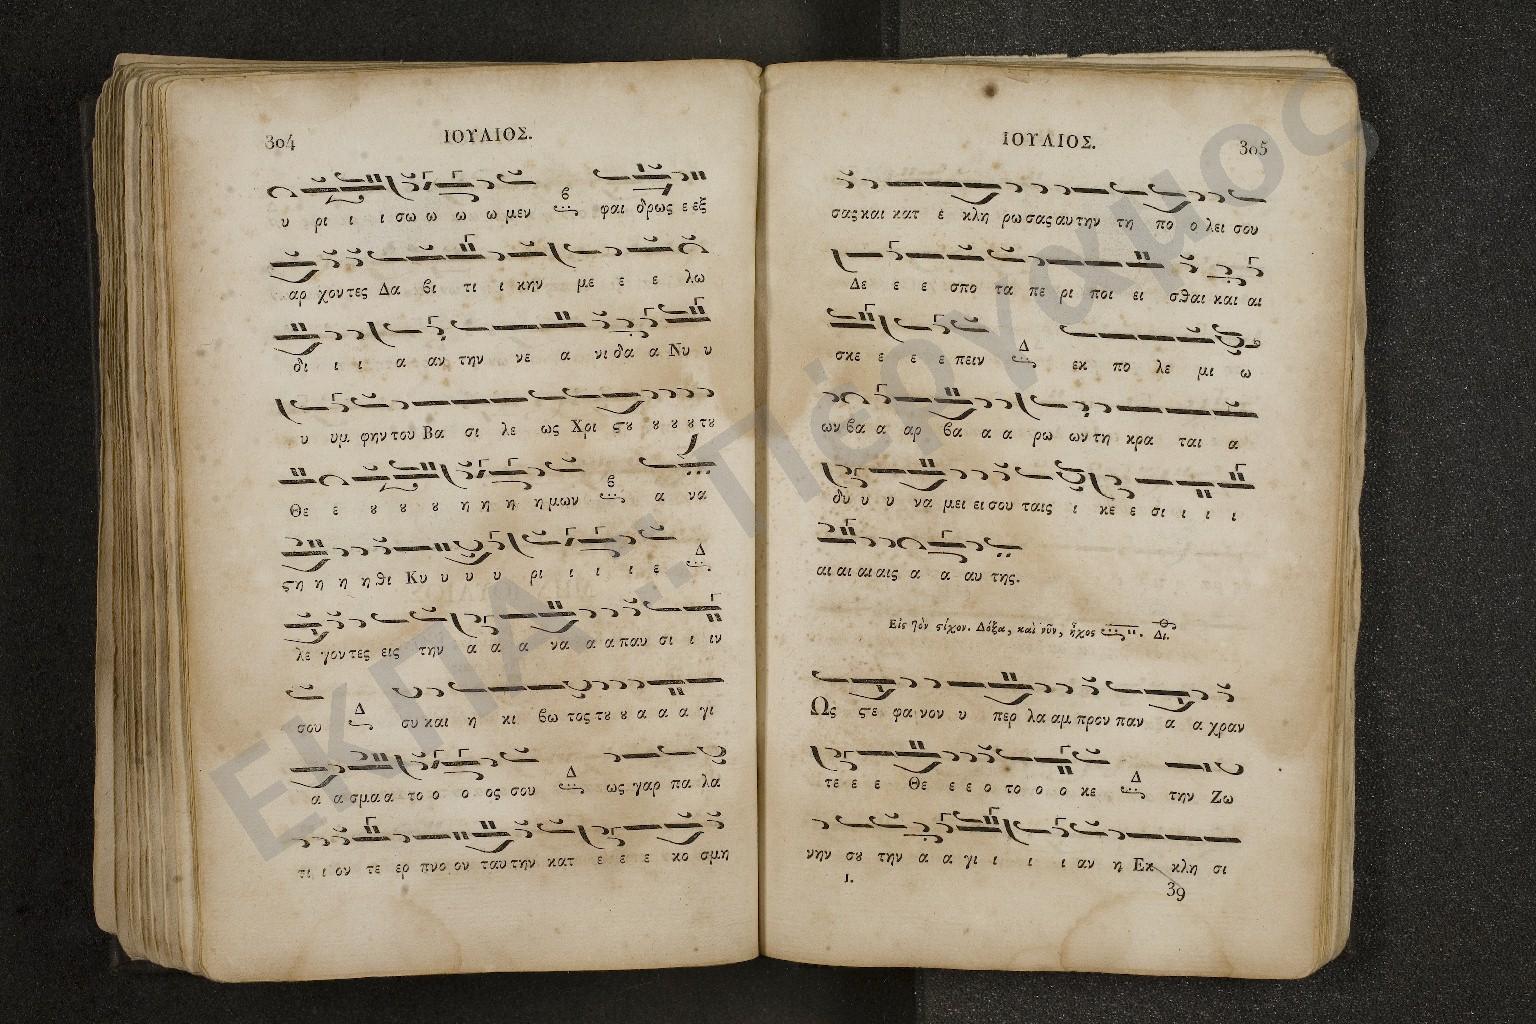 304
ΙΟΥΛΙΟΣ.
υ ρι ι ι σω ω ω ω μεν φαι δρως ε εξ
αρ χοντες Δα βι τι ι κην με ε ε λω
δι ι ι α αν την νε α νι δα α Νυ υ
υ υμ φην του Βα σι λε ως Χρι ϛȣ ȣ ȣ ȣ τȣ
Θε ε ȣ ȣ ȣ η η η η μων α να
ϛη η η η θι Κυ υ υ υ ρι ι ι ι ε
λε γοντες εις την α α α να α α παυ σι ι ιν
σου συ και η κι βω τος τȣ ȣ α α α γι
α α σμα α το ο ο ος σου ως γαρ πα λα
τι ι ον τε ερ πνο ον ταυ την κατ ε ε ε κο σμη
ΙΟΥΛΙΟΣ.
305
σας και κατ ε κλη ρω σας αυ την τη πο ο λει σου
Δε ε ε σπο τα πε ρι ποι ει σθαι και αι
σκε ε ε ε πειν εκ πο λε μι ω
ων βα α αρ βα α α ρω ων τη κρα ται α
δυ υ υ να μει ει σου ταις ι κε ε σι ι ι ι
αι αι αι αις α α αυ της.
Εἰς τὸν ϛίχον. Δόξα, καὶ νῦν, ἦχος Δι.
Ως ϛε φα νον υ περ λα αμ προν παν α α χραν
τε ε ε Θε ε ε ο το ο ο κε την Ζω
νην σȣ την α α γι ι ι ι αν η Εκ κλη σι
Ι.
39